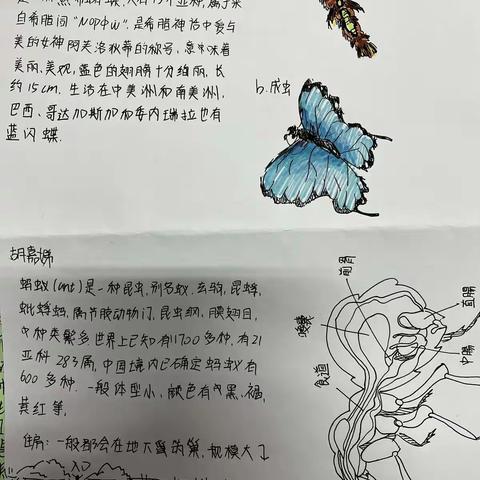 自希腊词“Μορφώ”.是希腊神话中爱与
美的女神阿芙洛狄蒂的称号,意味着
美丽、美观,蓝色的翅膀十分绚丽,长
约15cm.生活在中美洲和南美洲,
巴西、哥达加斯加和委内瑞拉也有
蓝闪蝶.
b.成虫
胡嘉娣
蚂蚁(ant)是一种昆虫,别名蚁、玄驹、昆蜉、
蚍蜉蚂,属节肢动物门,昆虫纲,膜翅目,
种类繁多世界上已知有11700多种,有21
亚科283属,中国境内已确定蚂蚁有
600多种.一般体型小,颜色有黑、褐、
黄红等.
住房:一般都会在地下筑巢,规模大
入口
食道
嗉囊
前胃
中肠
直肠